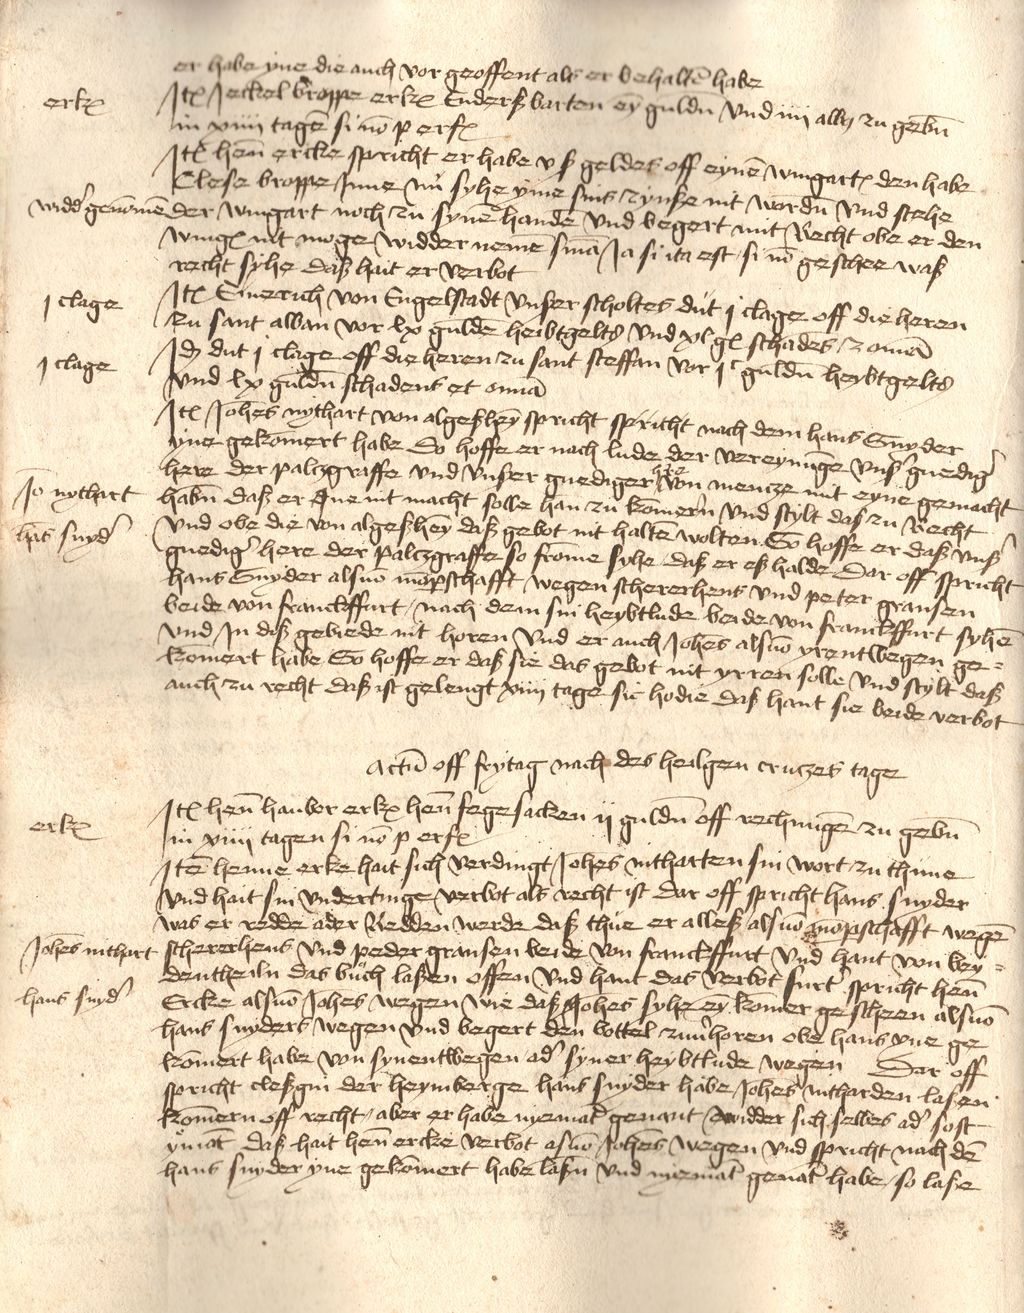 er habe yne die auch vor geoffent als er behaltē habe
erk
Itē Jeckel broppe erk Enderß barten eȳ guldn̄ vnd iiii alb zu gebn̄
in xiiii tagē si nō p erf
Itē hen̄ ercke spricht er habe vß geldes off eynē wingart den habe
Clese broppe Inne nū syhe yme sins zynße nit wordn̄ vnd stehe
widd' genōmē
der wingart noch zu synē handē vnd begert mit Recht obe er den
wing nit moge widder nemē Ja si ita est si nō geschee waß
recht syhe daß hait er verbot
j clage
Itē Emerich von Engelstadt vnser scholtes dut j clage off die heren
zu sant alban vor lx guldē heibtgelts vnd xl gl schadēs z omīa
j clage
Idē dut j clage off die heren zu sant steffan vor jc guldn̄ heybtgelts
vnd lx guldn̄ schadens et omīa
Itē Johēs nythart von algeßheȳ spricht spricht nach dem hans Snyder
yne gekōmert habe Do hoffe er nach lude der vereynūge vnß' gnedig'
here der palczgraffe vnd vnser gnediger here von mencze mit eyne gemacht
Jo nythart
habn̄ daß er yne nit macht solle han zu kōmern vnd stylt daß zu Recht
hās snyd'
vnd obe die von algeßheȳ daß gebot nit haltē wolten So hoffe er daß vnß'
gnedig' here der palczgraffe so frōme syhe daß er eß halde Dar off spricht
hans Snyder alsuō mōpschafft wegen schererhens vnd peter gransen
beide von franckffurt / nach dem sin heybtlude beide von franckffurt syhē
vnd In diß gebiede nit horen vnd er auch Johēs alsuō yrentwegen ge=
kōmert habe So hoffe er daß sie das gebot nit yrren solle vnd stylt daß
auch zu recht daß ist gelengt xiiii tage sic hodie daß hant sie beide verbot
Actū off frytag nach des heilgen cruczes tage
erk
Itē hen̄ haubor erk hen̄ fegesacken ij guldn̄ off rechnūge zu gebn̄
in xiiii tagen si nō p erf
Itē henne erke hait sich verdingt Johēs nitharten sin wort zu thūne
vnd hait sin vndertinge verbot als recht ist Dar off spricht hans snyder
was er redde ader Redden werde daß thūe er alleß alsuō mōpschafft wegē
Johēs nithart
schererhens vnd peder gransen beide von franckffurt vnd hant von bey=
dentheiln das būch laßen offen vnd hant das verbot furt' spricht hen̄
hans snyd'
Ercke alsuō Johēs wegen wie daß Johēs syhe eȳ kōmer gescheen alsuō
hans snyders wegen vnd begert den bottel zuu'horen obe hans yne ge
kōmert habe von synentwegen ad' syner heybtlude wegen Dar off
spricht cleßgin der heymberge hans snyder habe Johēs nitharden laßen
kōmern off recht / aber er habe nyemāt genant / widder sich selbes ad' sost
ymāt daß hait hen̄ ercke verbot asuō Johēs wegen vnd spricht nach dē
hans snyder yne gekōmert habe laßn̄ vnd nyemāt genāt habe / so laße